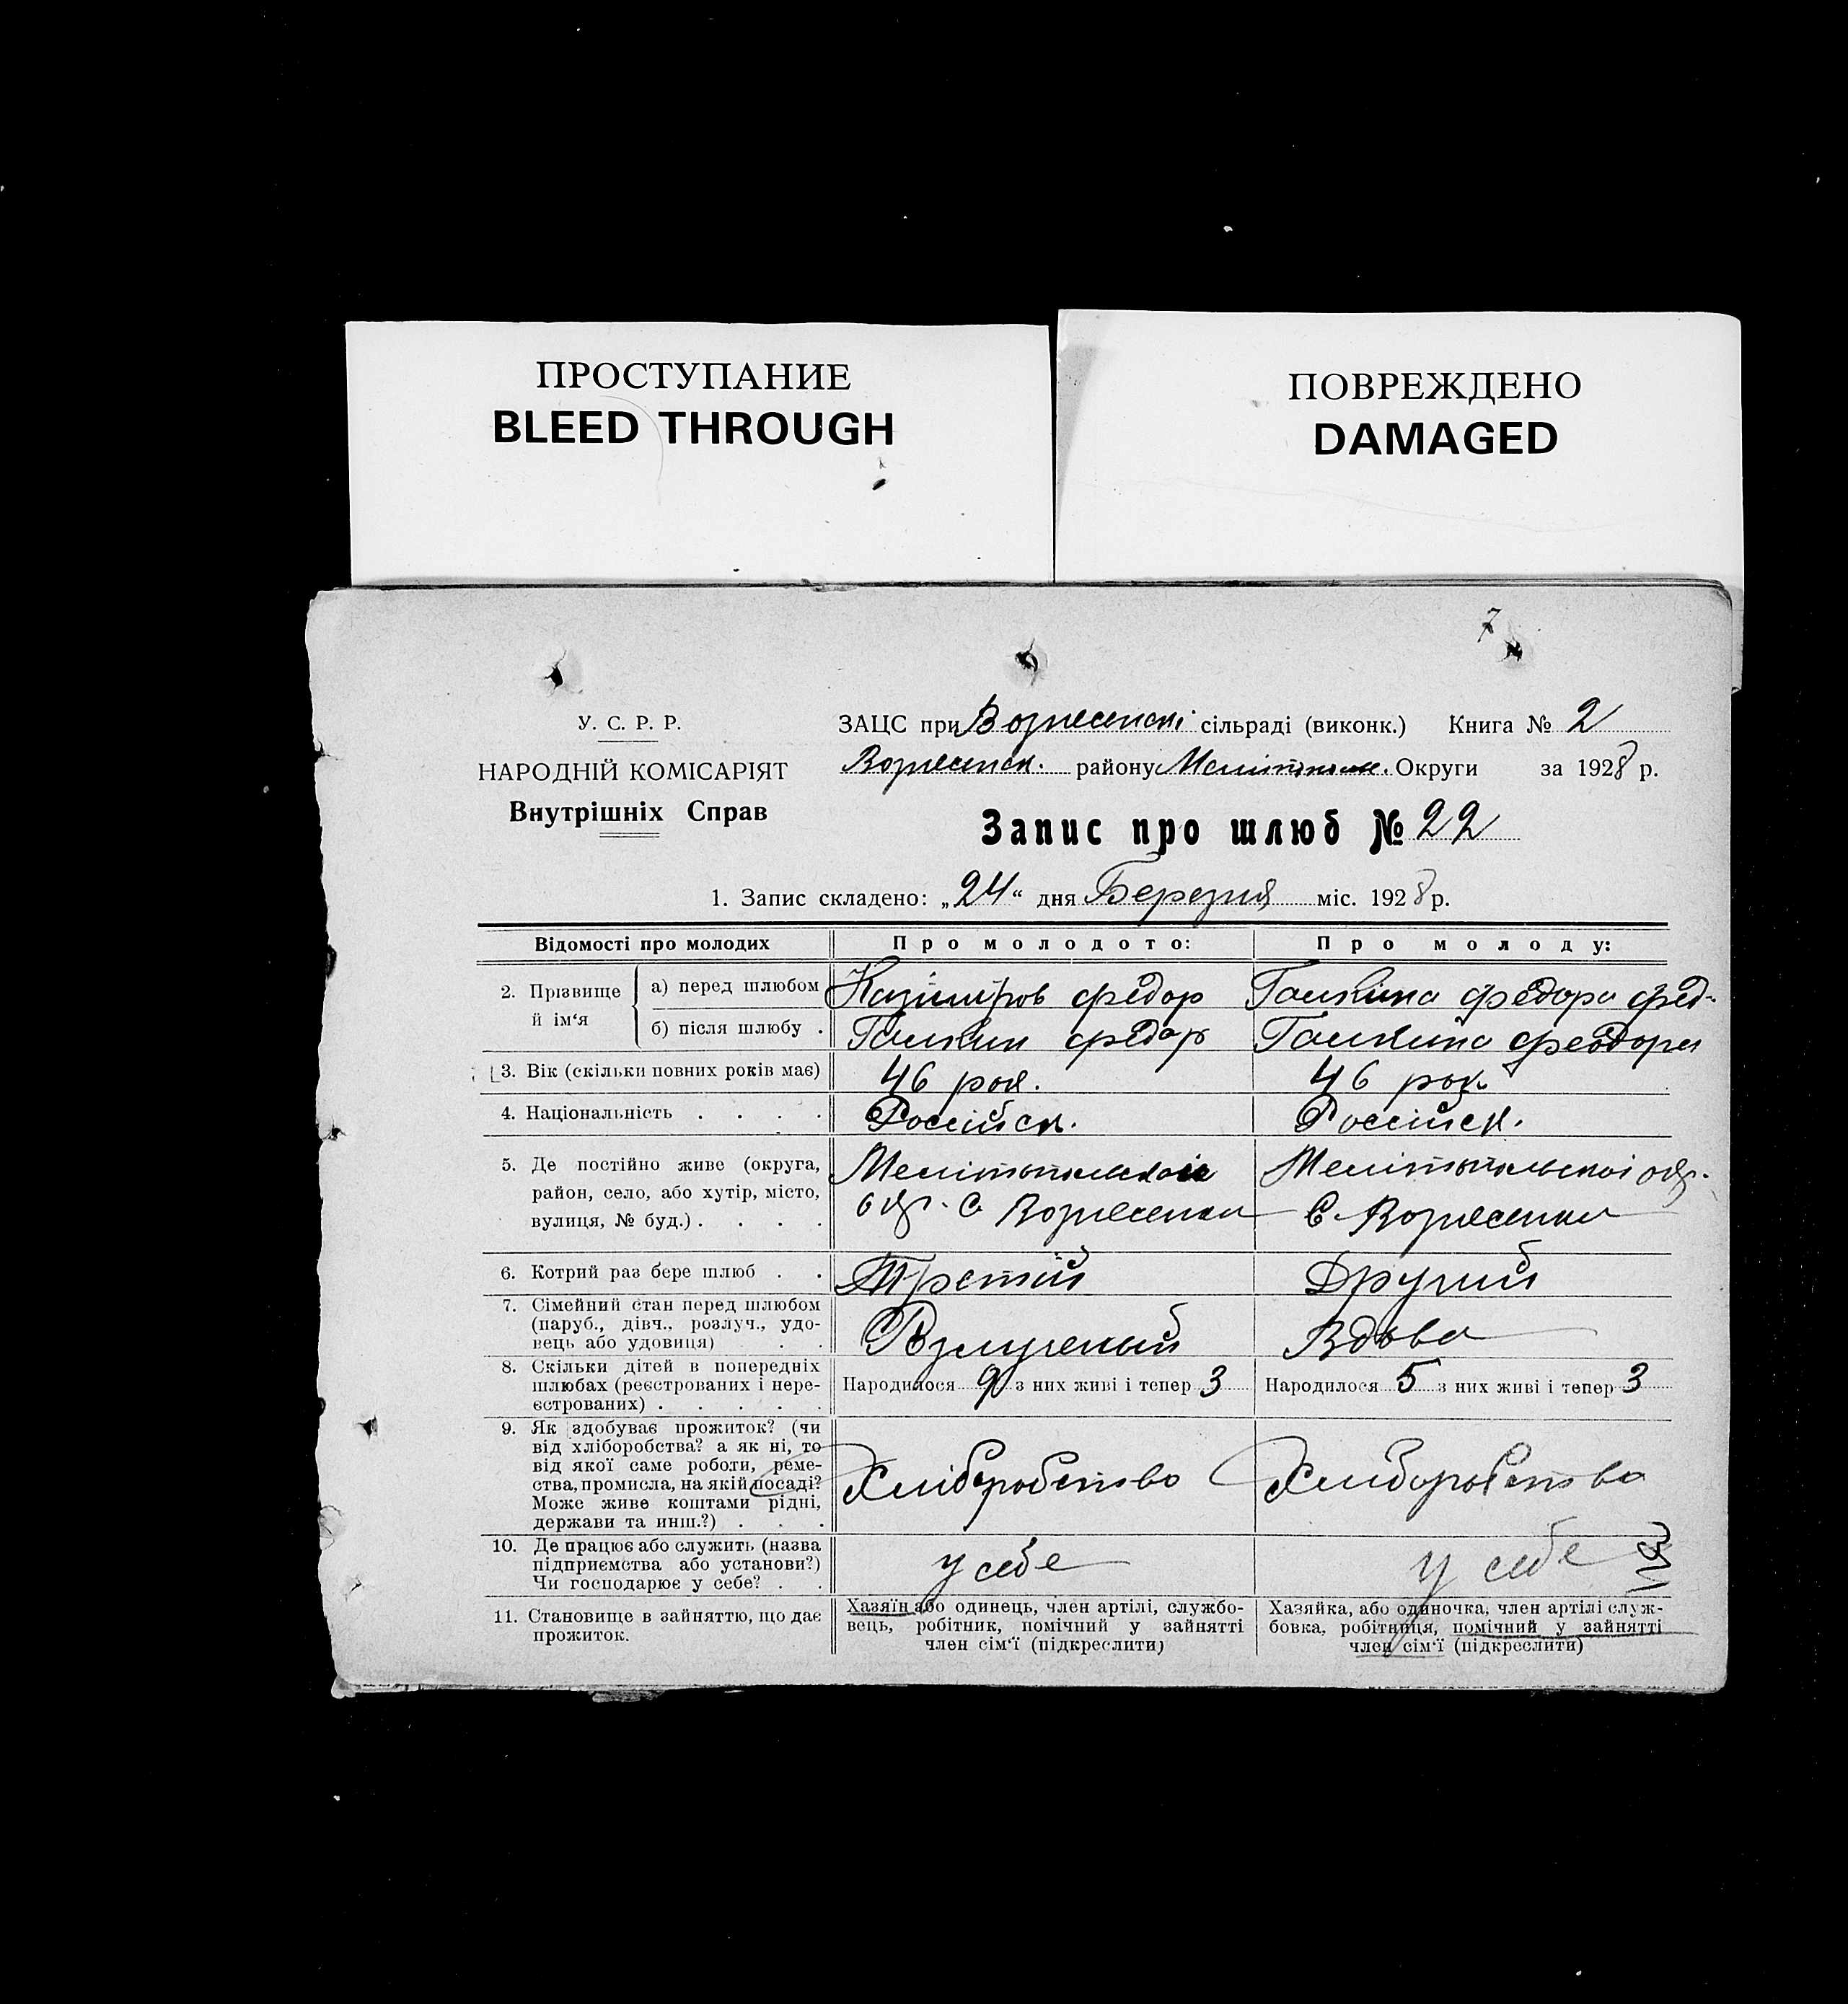 ПРОСТУПАНИЕ
BLEED THROUGH
ПОВРЕЖДЕНО
DAMAGED
7
У. С. Р. Р.
НАРОДНІЙ КОМІСАРІЯТ
Внутрішніх Справ
ЗАЦС при Вознесенскі сільраді (виконк.) Книга № 2
Вознесенск. району Мелітопольс. Округи за 1928 р.
Запис про шлюб № 22
1. Запис складено: „24“ дня Березня міс. 1928 р.
Відомості про молодих
Про молодого:
Про молоду:
2. Прізвище й ім‘я
а) перед шлюбом
Казиміров Федор
Галкина Федора Фед-
б) після шлюбу .
Галкин Федор
Галкина Феодора
3. Вік (скільки повних років має)
46 рок.
46 рок
4. Національність . . . .
Російск.
Російск.
5. Де постійно живе (округа,
район, село, або хутір, місто,
вулиця, № буд.) . . . .
Мелітопольскоі
окр. с Вознесенки
Мелітопольскоі окр.
С. Вознесенки
6. Котрий раз бере шлюб . .
Третій
Другий
7. Сімейний стан перед шлюбом
(паруб., дівч., розлуч., удо-
вець або удовиця) . .
Розлученый
Вдова
8. Скільки дітей в попередніх
шлюбах (реєстрованих і нере-
єстрованих) . . . . .
Народилося 9 з них живі і тепер 3
Народилося 5 з них живі і тепер 3
9. Як здобуває прожиток? (чи
від хліборобства? а як ні, то
від якої саме роботи, реме-
ства, промисла, на якій посаді?
Може живе коштами рідні,
держави та инш.?) . . .
Хліборобство
Хліборобство
10. Де працює або служить (назва
підприємства або установи?)
Чи господарює у себе? . .
у себе
у себе
11. Становище в зайняттю, що дає
прожиток.
Хазяїн або одинець, член артілі, службо-
вець, робітник, помічний у зайнятті
член сім‘ї (підкреслити)
Хазяйка, або одиночка, член артілі служ-
бовка, робітниця, помічний у зайнятті
член сім‘ї (підкреслити)